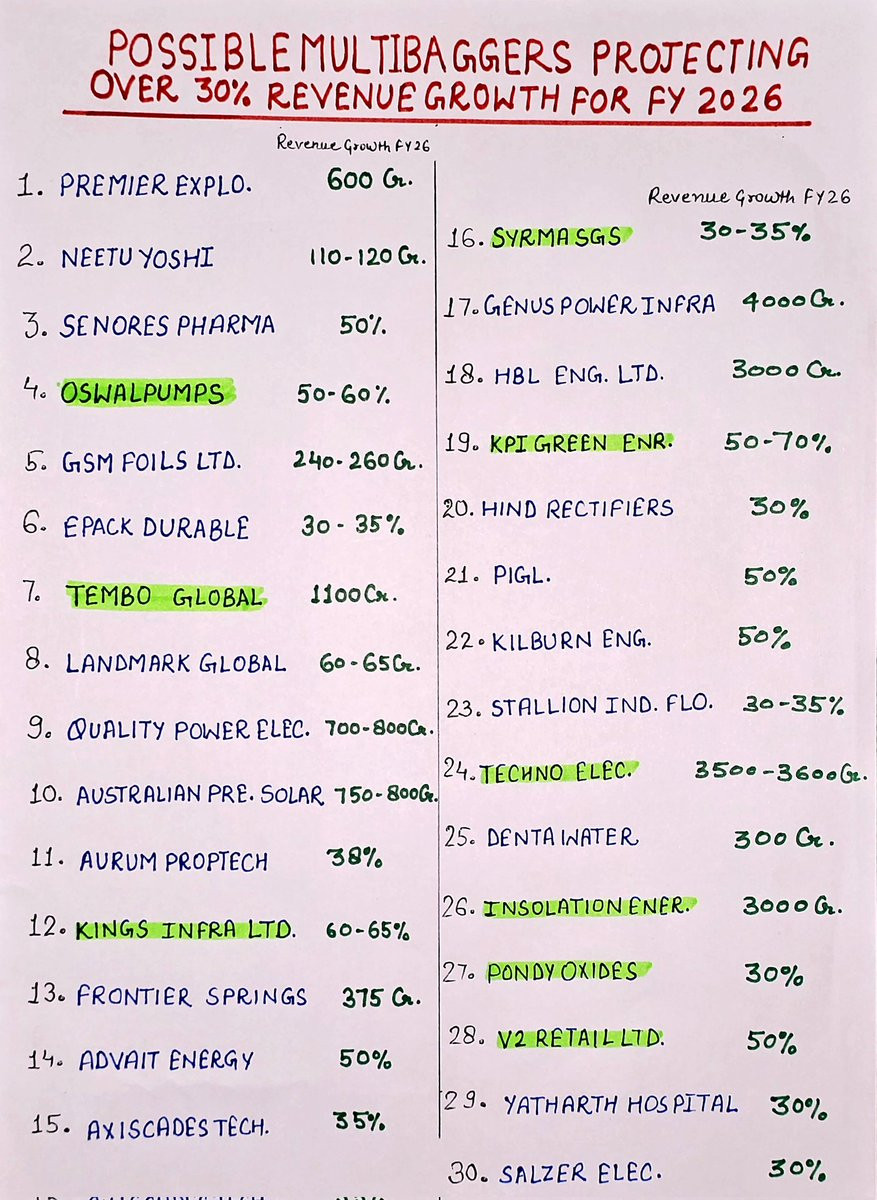 POSSIBLE MULTIBAGGERS PROJECTING
OVER 30% REVENUE GROWTH FOR FY 2026
Revenue Growth FY26
1. PREMIER EXPLO. 600 Cr.
2. NEETU YOSHI 110-120 Cr.
3. SENORES PHARMA 50%.
4. OSWALPUMPS 50-60%
5. GSM FOILS LTD. 240-260 Cr.
6. EPACK DURABLE 30-35%
7. TEMBO GLOBAL 1100 Cr.
8. LANDMARK GLOBAL 60-65 Cr.
9. QUALITY POWER ELEC. 700-800Cr.
10. AUSTRALIAN PRE. SOLAR 750-800Cr.
11. AURUM PROPTECH 38%
12. KINGS INFRA LTD. 60-65%
13. FRONTIER SPRINGS 375 Cr.
14. ADVAIT ENERGY 50%
15. AXISCADES TECH. 35%
Revenue Growth FY26
16. SYRMA SGS 30-35%
17. GENUS POWER INFRA 4000 Cr.
18. HBL ENG. LTD. 3000 Cr.
19. KPI GREEN ENR. 50-70%
20. HIND RECTIFIERS 30%
21. PIGL. 50%
22. KILBURN ENG. 50%
23. STALLION IND. FLO. 30-35%
24. TECHNO ELEC. 3500-3600 Cr.
25. DENTA WATER 300 Cr.
26. INSOLATION ENER. 3000 Cr.
27. PONDY OXIDES 30%
28. V2 RETAIL LTD. 50%
29. YATHARTH HOSPITAL 30%
30. SALZER ELEC. 30%